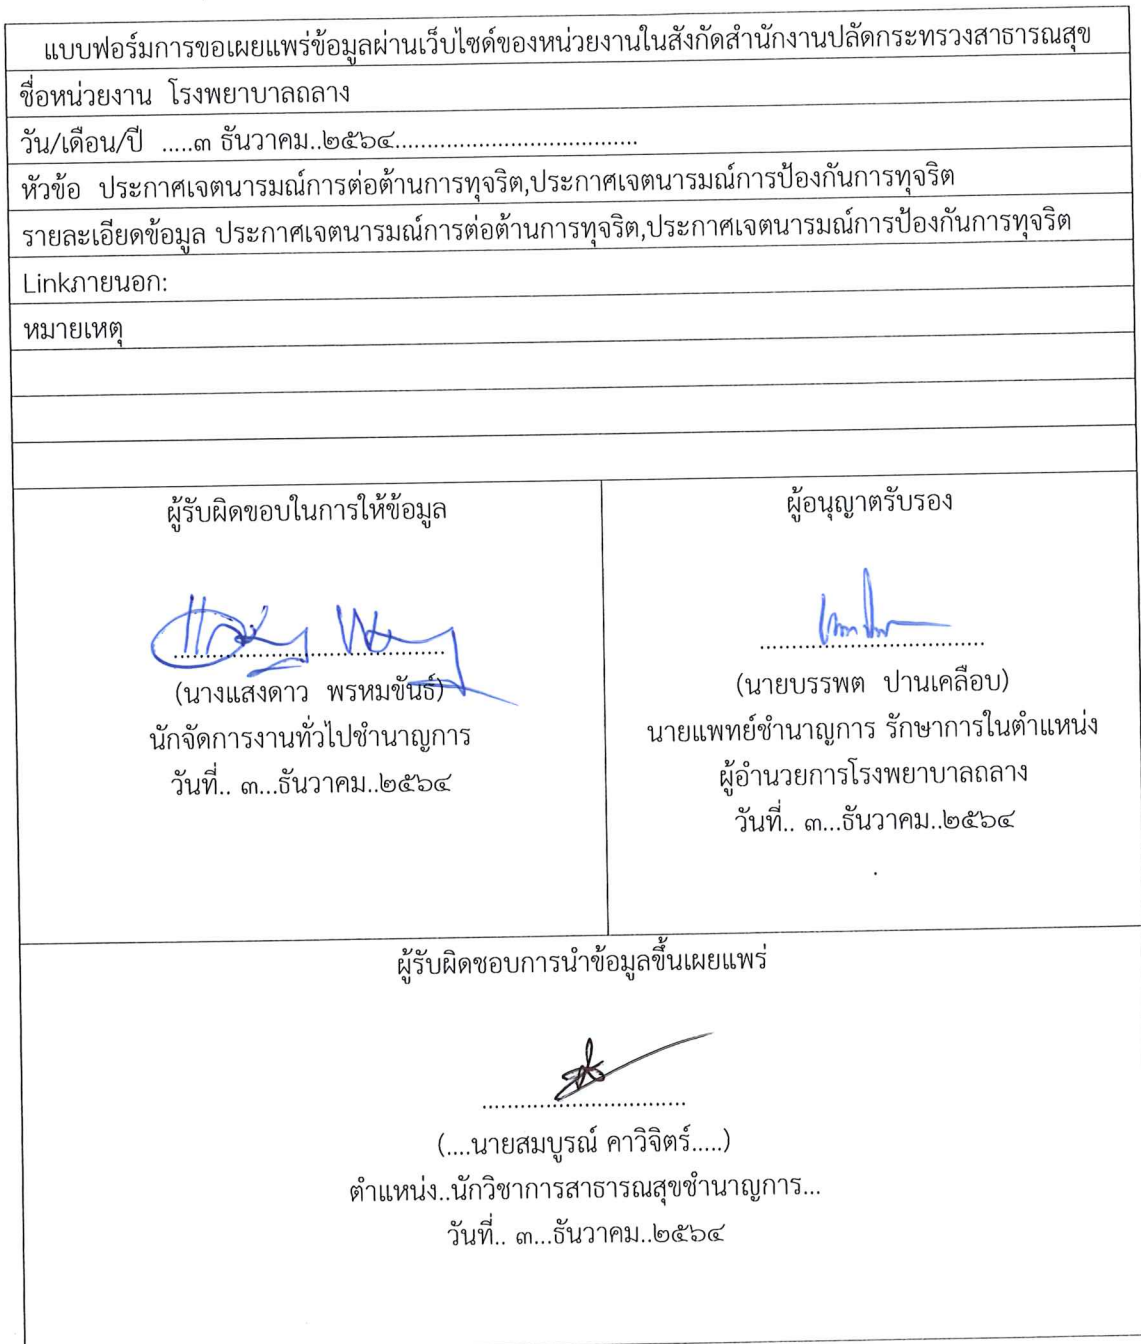 แบบฟอร์มการขอเผยแพร่ข้อมูลผ่านเว็บไซด์ของหน่วยงานในสังกัดสำนักงานปลัดกระทรวงสาธารณสุข
ชื่อหน่วยงาน โรงพยาบาลถลาง
วัน/เดือน/ปี .....๓ ธันวาคม..๒๕๖๔.....................................
หัวข้อ ประกาศเจตนารมณ์การต่อต้านการทุจริต,ประกาศเจตนารมณ์การป้องกันการทุจริต
รายละเอียดข้อมูล ประกาศเจตนารมณ์การต่อต้านการทุจริต,ประกาศเจตนารมณ์การป้องกันการทุจริต
Linkภายนอก:
หมายเหตุ
ผู้รับผิดขอบในการให้ข้อมูล
(นางแสงดาว พรหมขันธ์)
นักจัดการงานทั่วไปชำนาญการ
วันที่.. ๓...ธันวาคม..๒๕๖๔
ผู้อนุญาตรับรอง
(นายบรรพต ปานเคลือบ)
นายแพทย์ชำนาญการ รักษาการในตำแหน่ง
ผู้อำนวยการโรงพยาบาลถลาง
วันที่.. ๓...ธันวาคม..๒๕๖๔
ผู้รับผิดชอบการนำข้อมูลขึ้นเผยแพร่
(....นายสมบูรณ์ คาวิจิตร์.....)
ตำแหน่ง..นักวิชาการสาธารณสุขชำนาญการ...
วันที่.. ๓...ธันวาคม..๒๕๖๔